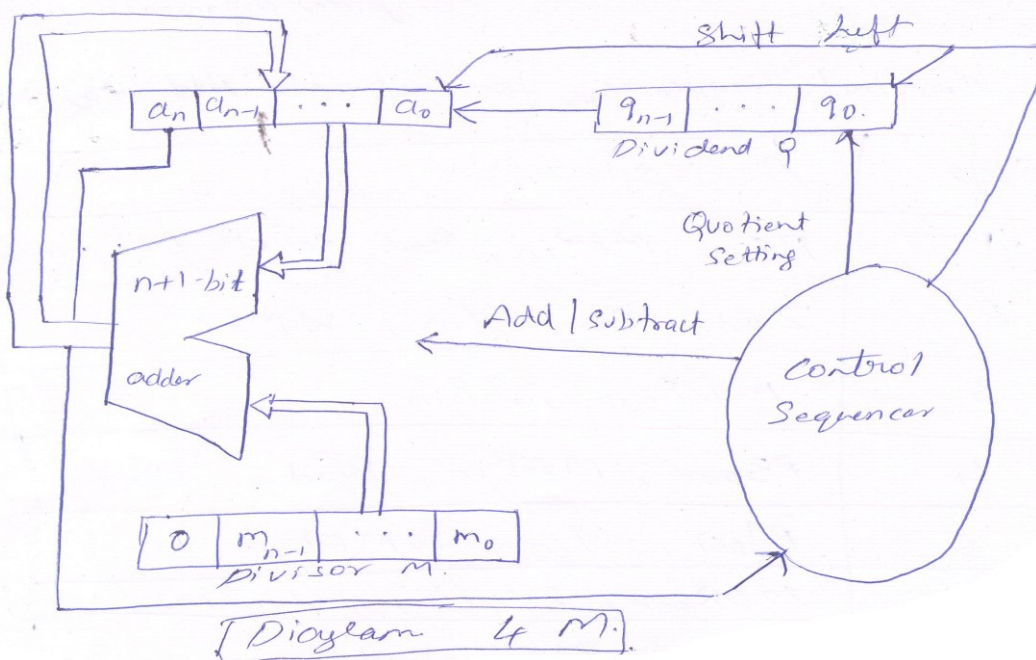 Shift Left
aₙ aₙ₋₁ . . . a₀
qₙ₋₁ . . . q₀.
Dividend Q
Quotient
Setting
n+1-bit
adder
Add / subtract
Control
Sequencer
0 mₙ₋₁ . . . m₀
Divisor M.
Diaglam 4 M.